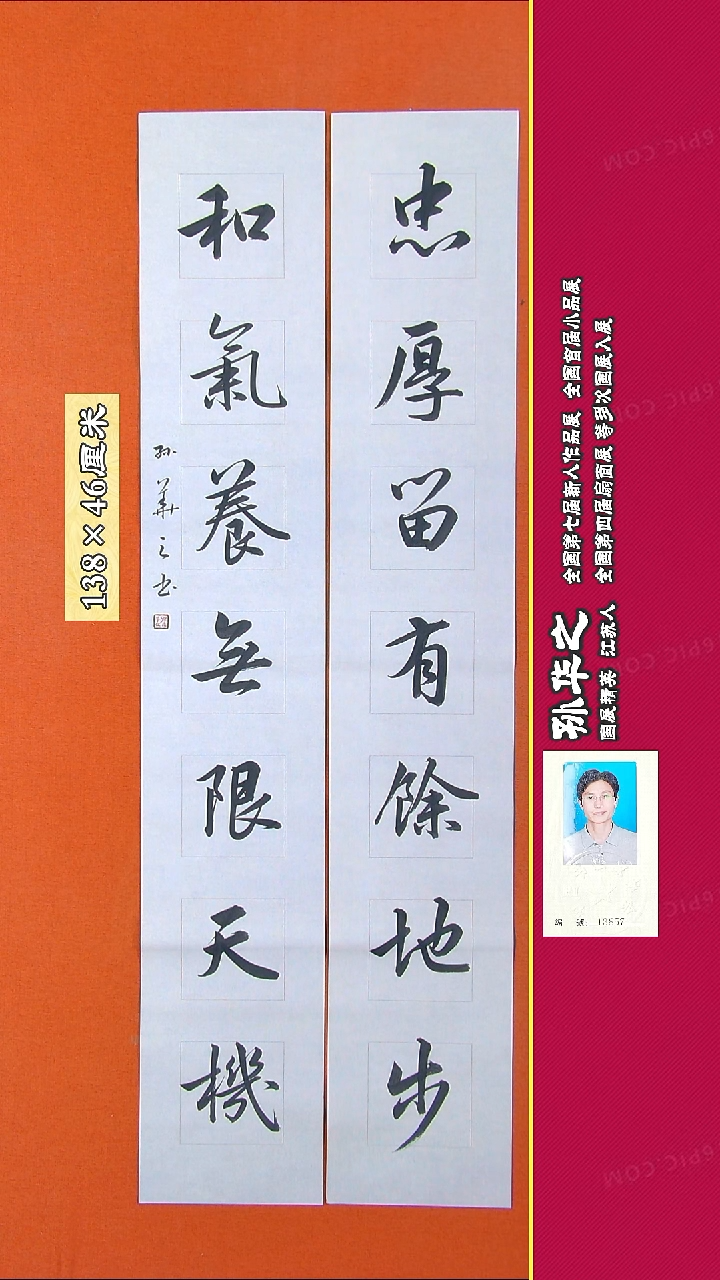 忠厚留有餘地步
和氣養無限天機
孙華之书
138×46厘米
孙华之
国展精英 江苏人
全国第七届新人作品展 全国首届小品展
全国第四届扇面展 等多次国展入展
编 号: 13857
6PIC.COM
6PIC.COM
6PIC.COM
6PIC.COM
6PIC.COM